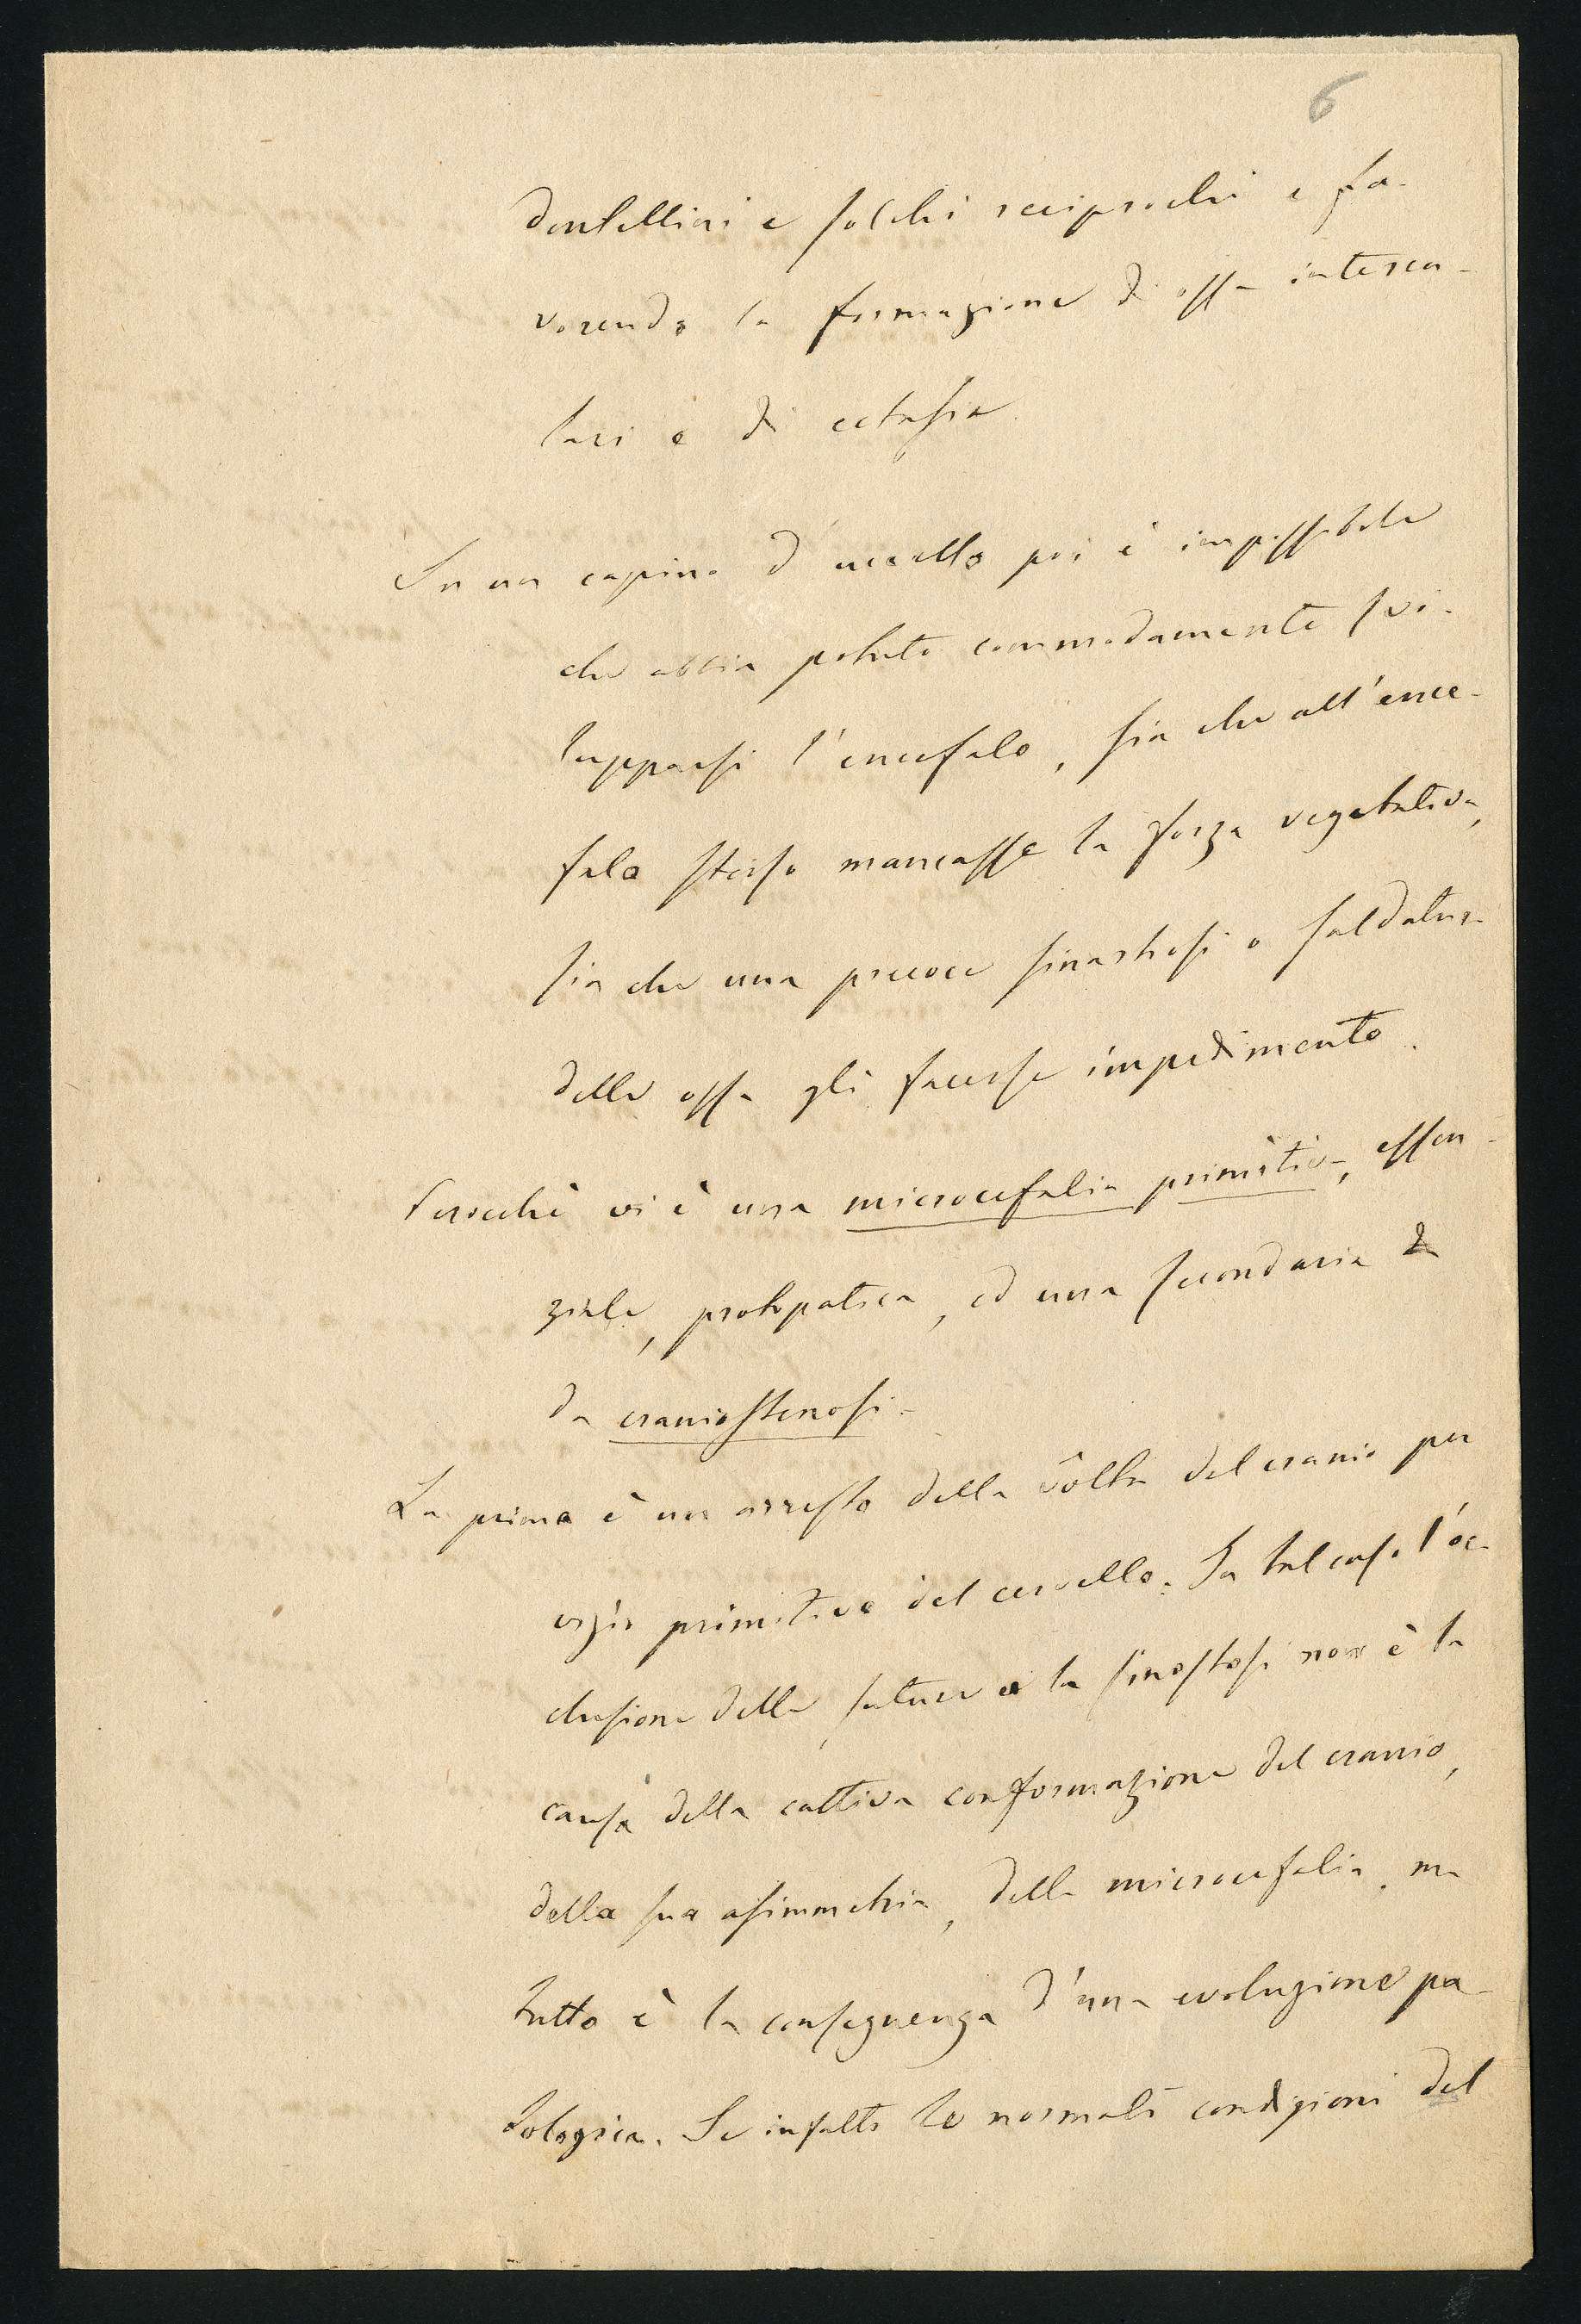 6
dentellini e solchi reciprochi e fa-
vorendo la formazione di ossa interca-
lari e di ectasia
In un capino d'uccello poi è impossibile
che abbia potuto commodamente svi-
lupparsi l'encefalo, sia che all'ence-
falo stesso mancasse la forza vegetativa,
sia che una precoce sinartrosi o saldatura
delle ossa gli facesse impedimento.
Perocchè vi è una microcefalia primitiva, essen-
ziale, protopatica, ed una secondaria
da craniostenosi-
La prima è un arresto della vôlta del cranio per
primitiva del cervello. In tal caso l'oc-
clusione delle suture e la sinostosi non è la
causa della cattiva conformazione del cranio,
della sua asimmetria, della microcefalia, ma
tutto è la conseguenza d'una evoluzione pa-
tologica. Se infatti le normali condizioni del